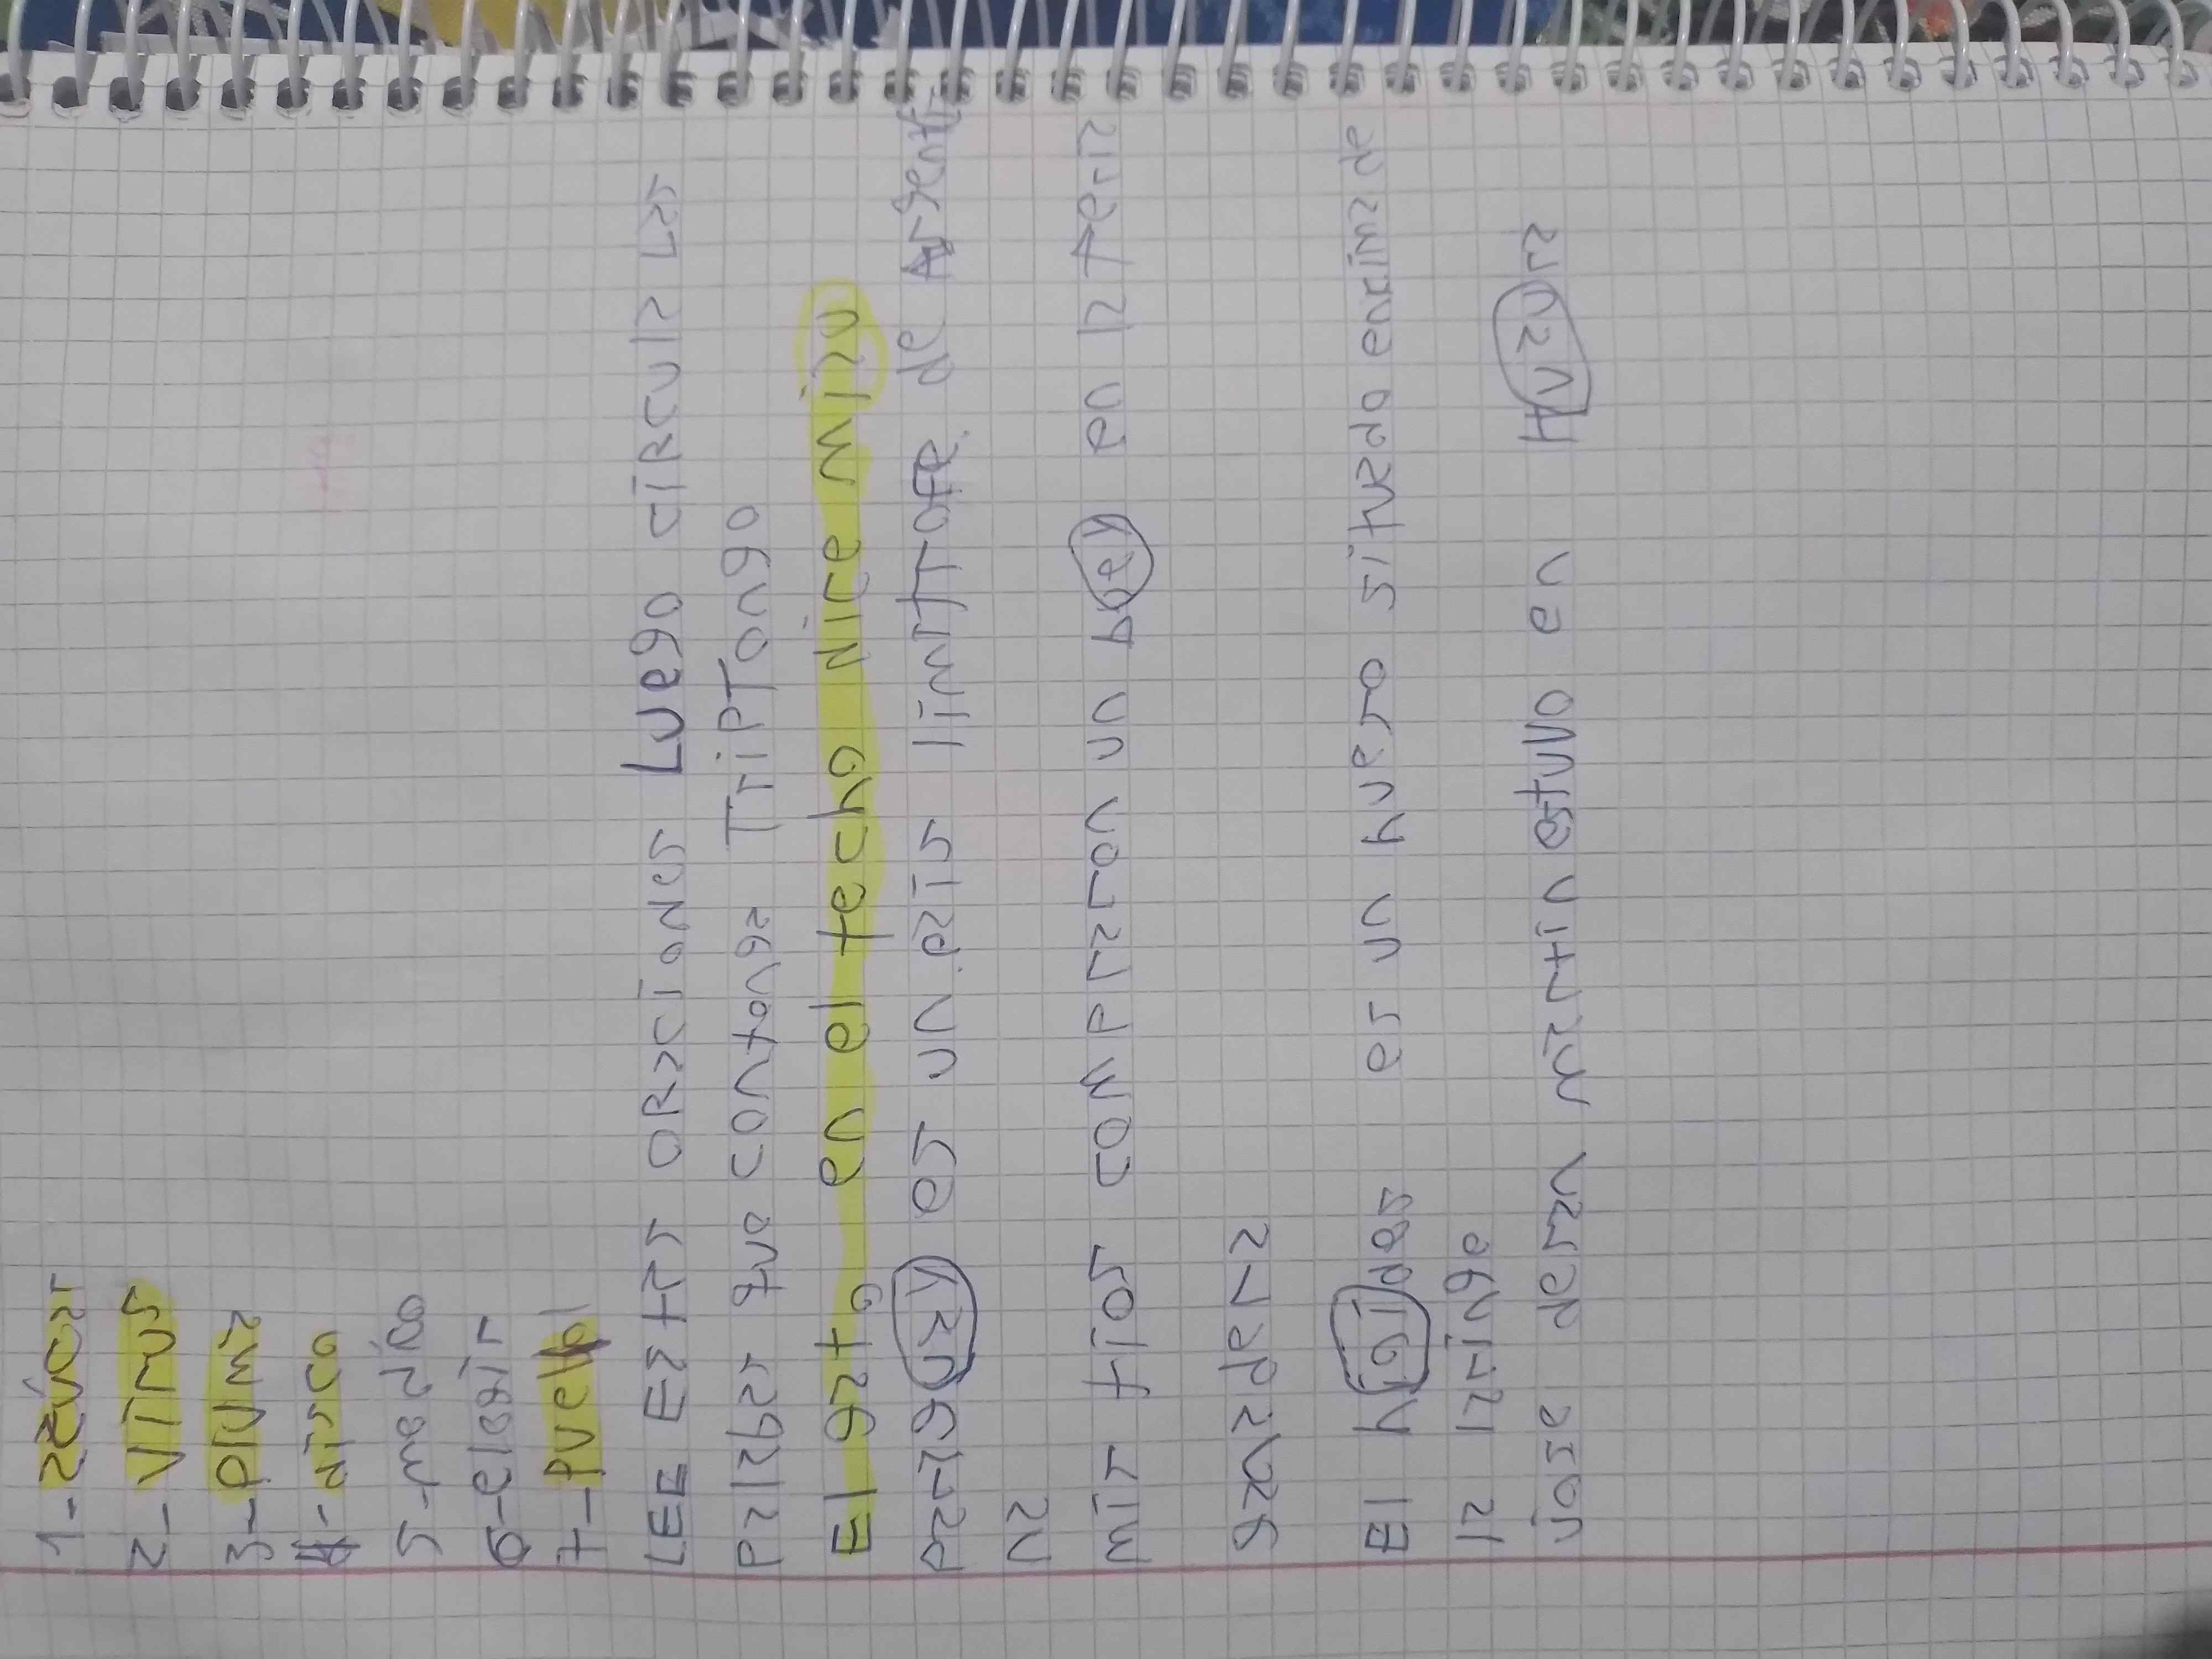 1-
2-virus
3-pluma
4-disco
5-medico
6-elegir
7-
LEE ESTAS ORACIONES LUego circula Las
Palabas que contenga TripTongo
El gato en el techo Nice miau
Paraguay es un pais limitrofe de Argenti
na
mis tios compraron un buey en la feria
ganadera
El hioides es un hueso situado encima de
la laringe
jose deran martin estuvo en Huaura